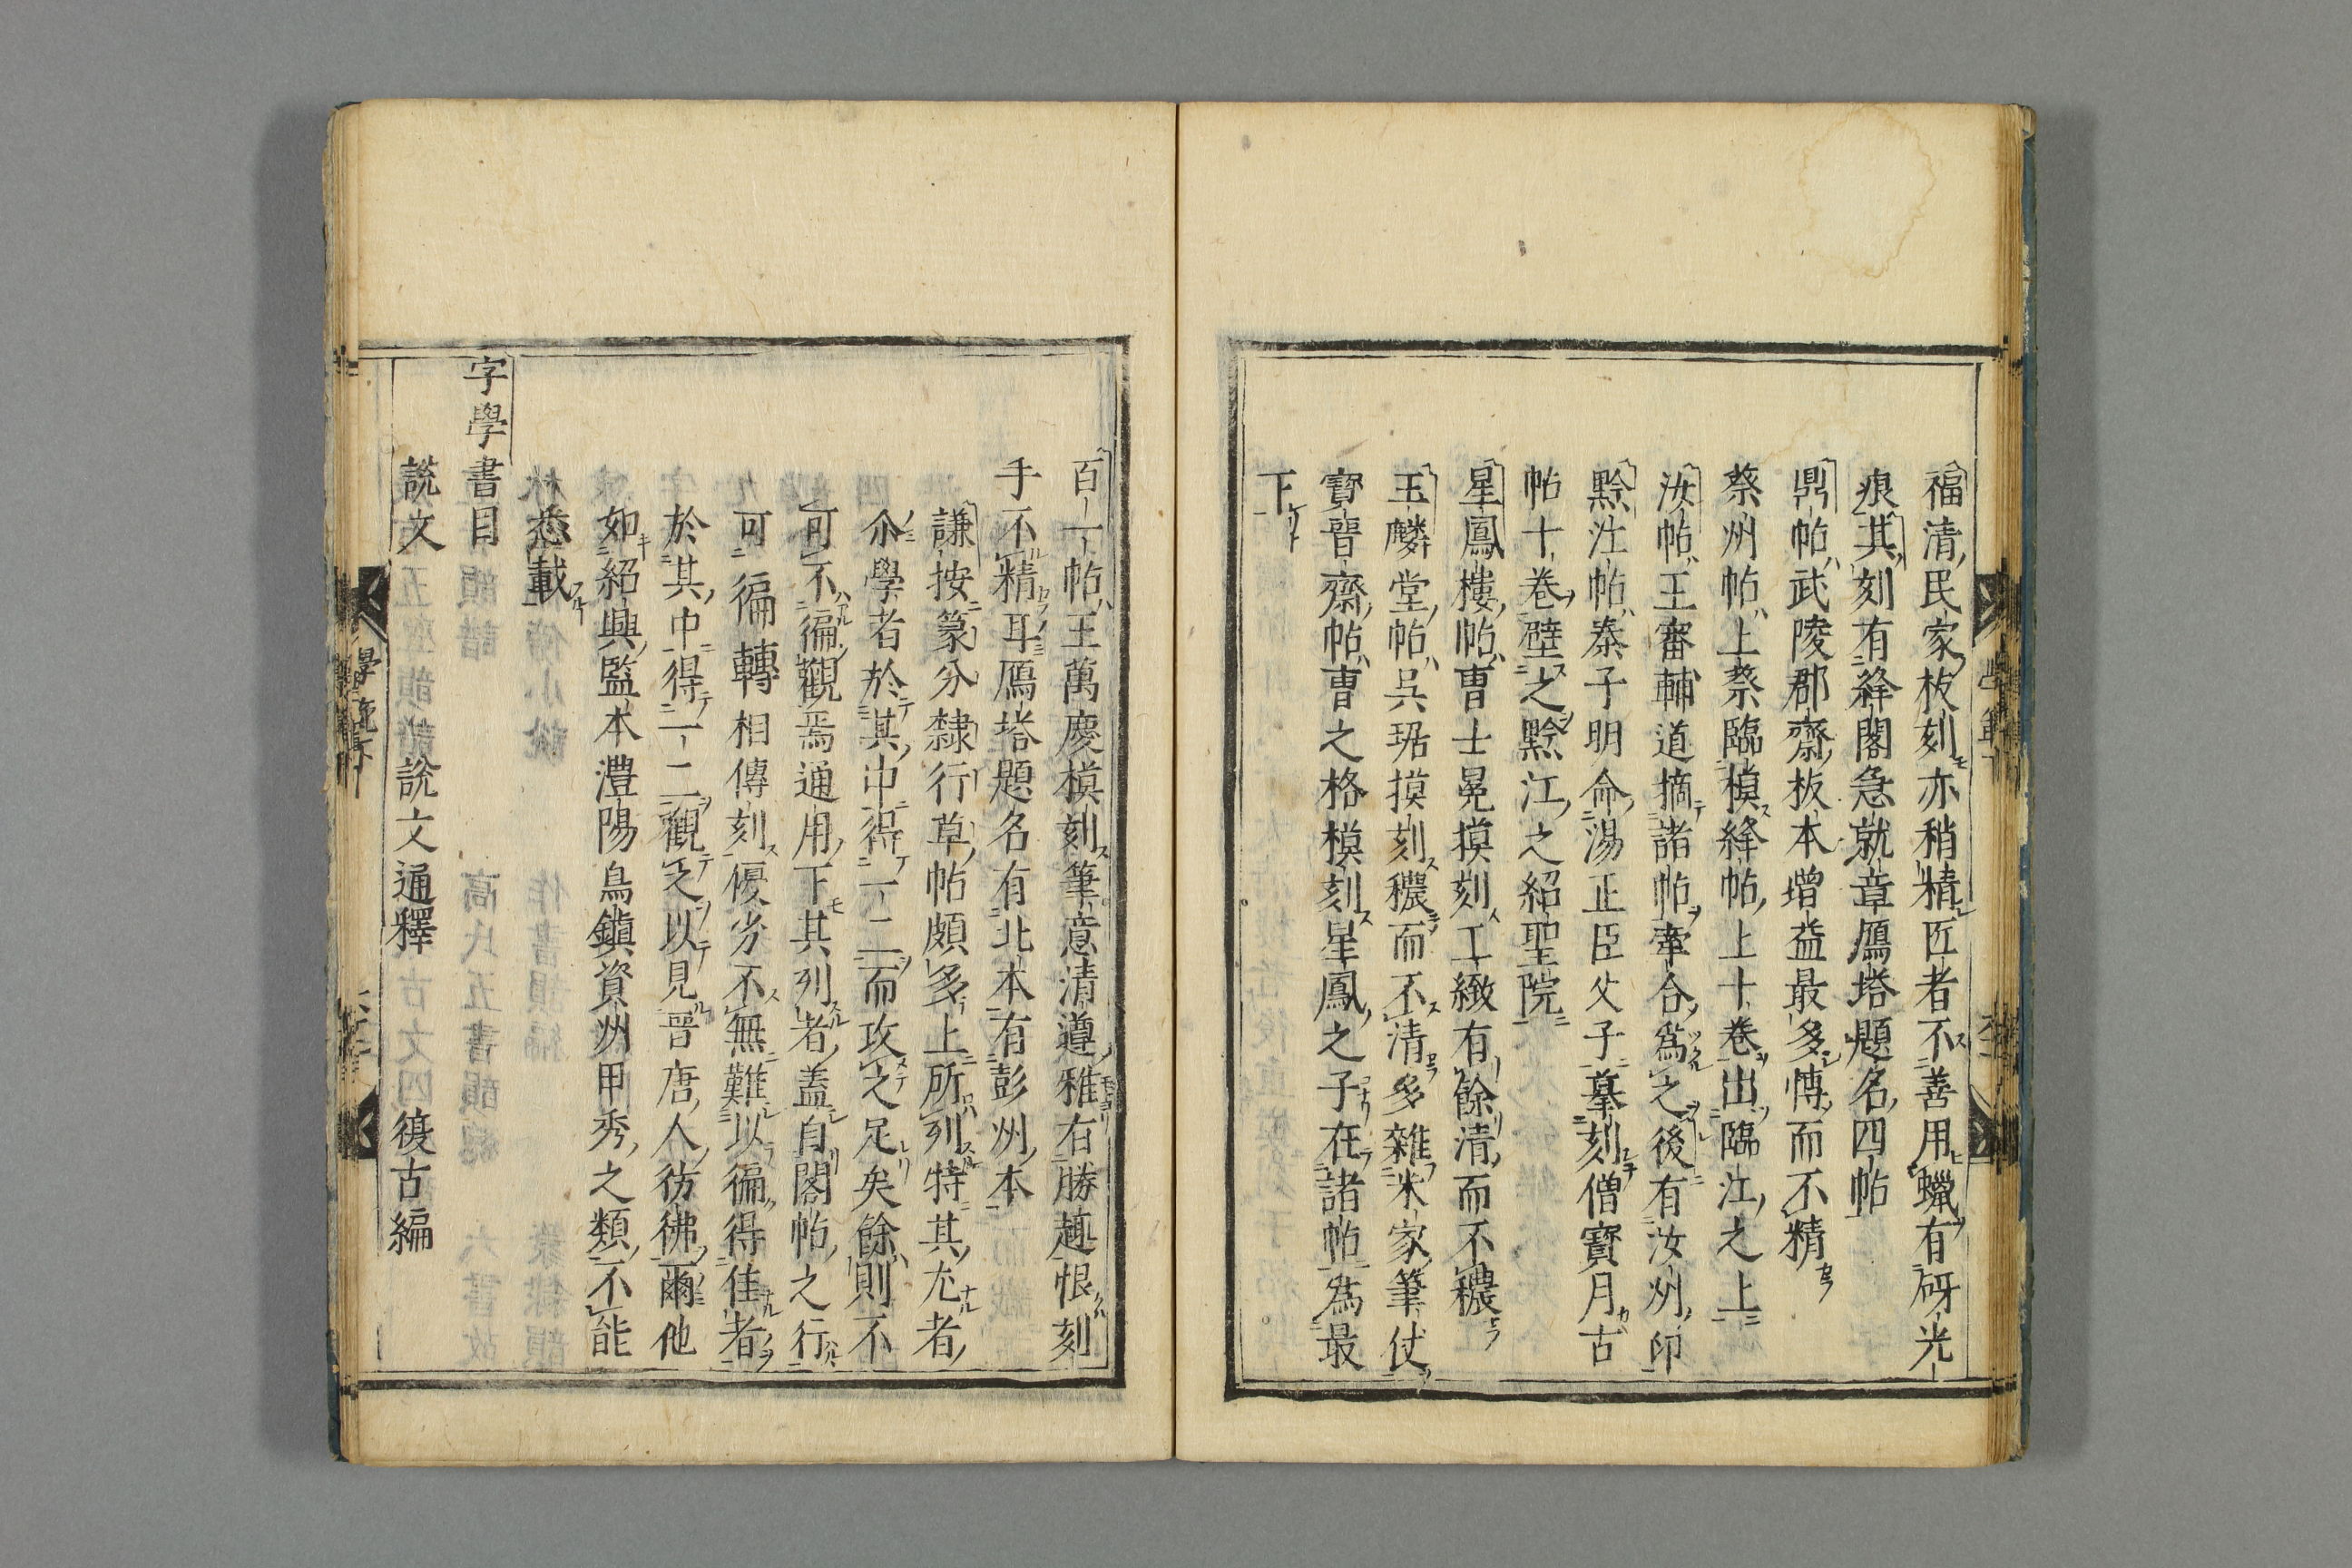 福清民家板刻亦稍精匠者不善用蠟有砑光
痕其刻有絳閣急就章鴈塔題名四帖
鼎帖武陵郡齋板本增益最多博而不精
蔡州帖上蔡臨摸絳帖上十卷出臨江之上
汝帖王審輔道摘諸帖牽合爲之後有汝州印
黔江帖秦子明命湯正臣父子摹刻僧寶月古
帖十卷壁之黔江之紹聖院
星鳳樓帖曹士冕摸刻工緻有餘清而不穠
玉麟堂帖吳琚摸刻穠而不清多雜米家筆仗
寶晉齋帖曹之格模刻星鳳之子在諸帖爲最
下
百一帖王萬慶模刻筆意清遵雅有勝趣恨刻
手不精耳鴈塔題名有北本有彭州本
謙按篆分隸行草帖頗多上所列特其尤者
尒學者於其中得一二而攻之足矣餘則不
可不徧觀焉通用下其列者蓋自閣帖之行
可徧轉相傳刻優劣不無難以徧得佳者
於其中得一二觀之以見晉唐人彷彿爾他
如紹興監本澧陽烏鎮資州甲秀之類不能
悉載
字學書目
說文 說文通釋 復古編